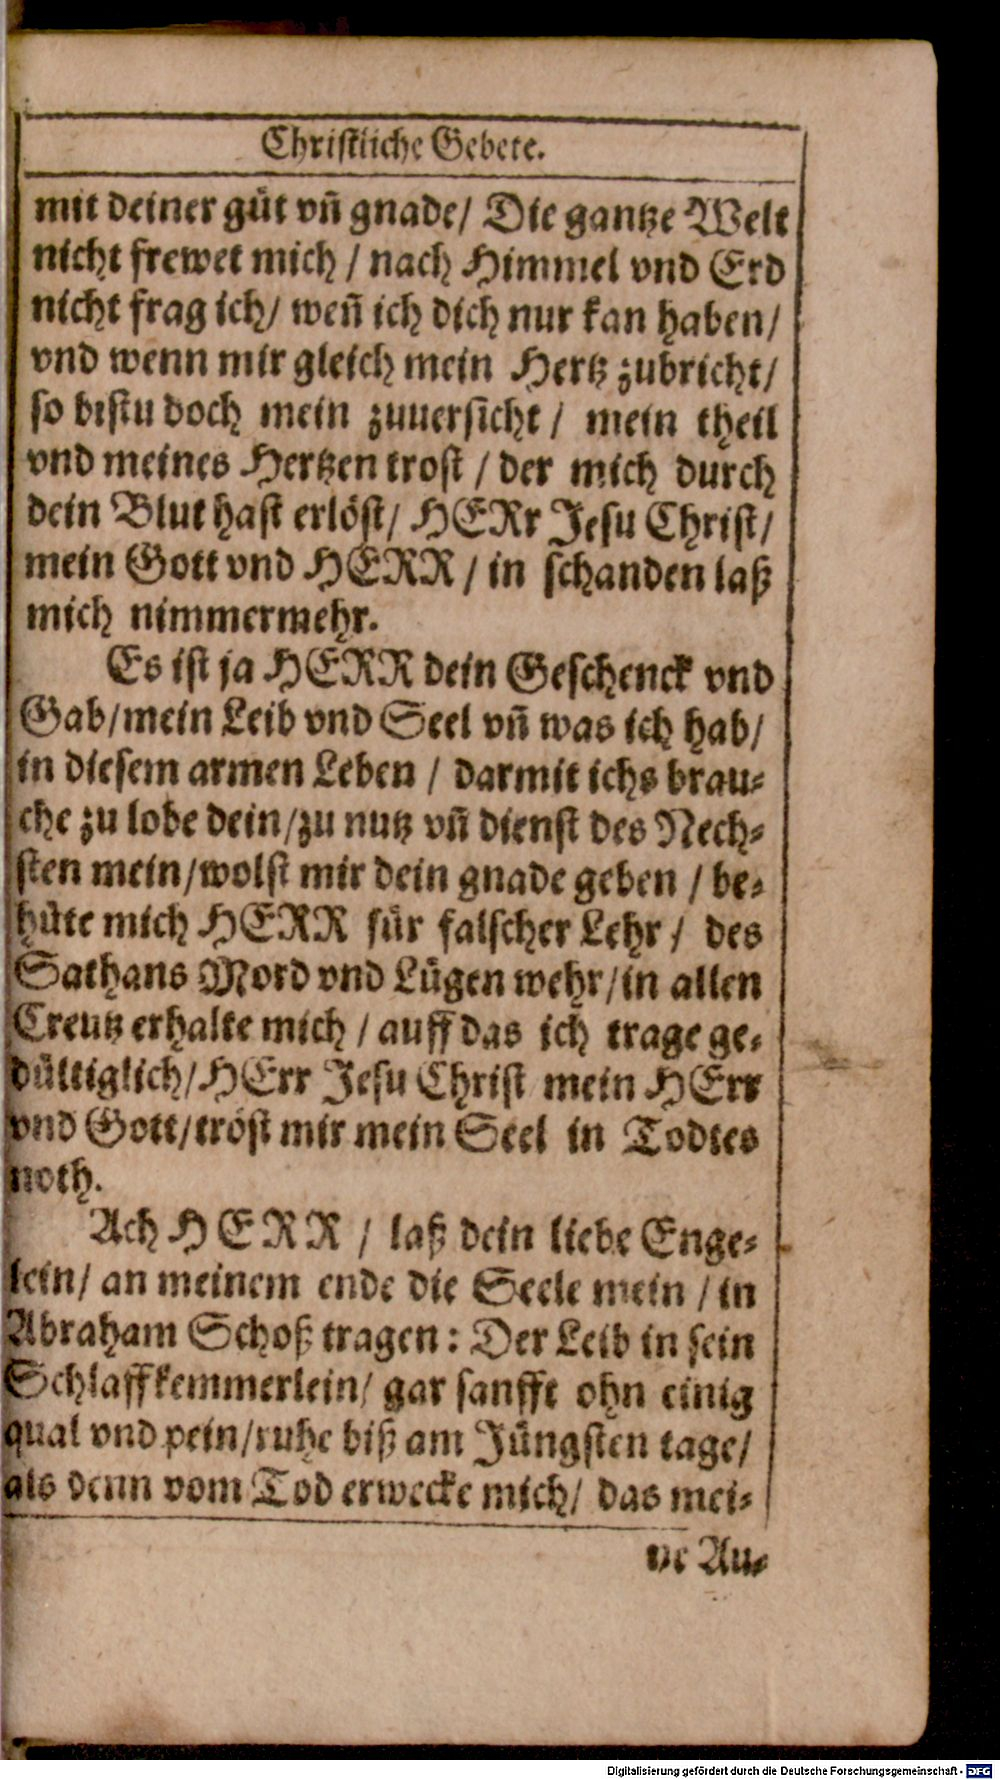 Christliche Gebete.
mit deiner güt vñ gnade/ Die gantze Welt
nicht frewet mich / nach Himmel vnd Erd
nicht frag ich/ weñ ich dich nur kan haben/
vnd wenn mir gleich mein Hertz zubricht/
so bistu doch mein zuuersicht / mein theil
vnd meines Hertzen trost / der mich durch
dein Blut hast erlöst/ HERr Jesu Christ/
mein Gott vnd HERR / in schanden laß
mich nimmermehr.
Es ist ja HERR dein Geschenck vnd
Gab/mein Leib vnd Seel vñ was ich hab/
in diesem armen Leben / darmit ichs brau-
che zu lobe dein/zu nutz vñ dienst des Nech-
sten mein/wolst mir dein gnade geben / be-
hüte mich HERR für falscher Lehr / des
Sathans Mord vnd Lügen wehr/in allen
Creutz erhalte mich / auff das ich trage ge-
dültiglich/HErr Jesu Christ mein HErr
vnd Gott/tröst mir mein Seel in Todtes
noth.
Ach HERR / laß dein liebe Enge-
lein/ an meinem ende die Seele mein / in
Abraham Schoß tragen: Der Leib in sein
Schlaffkemmerlein/ gar sanfft ohn einig
qual vnd pein/ruhe biß am Jüngsten tage/
als denn vom Tod erwecke mich/ das mei-
ne Au-
Digitalisierung gefördert durch die Deutsche Forschungsgemeinschaft - DFG